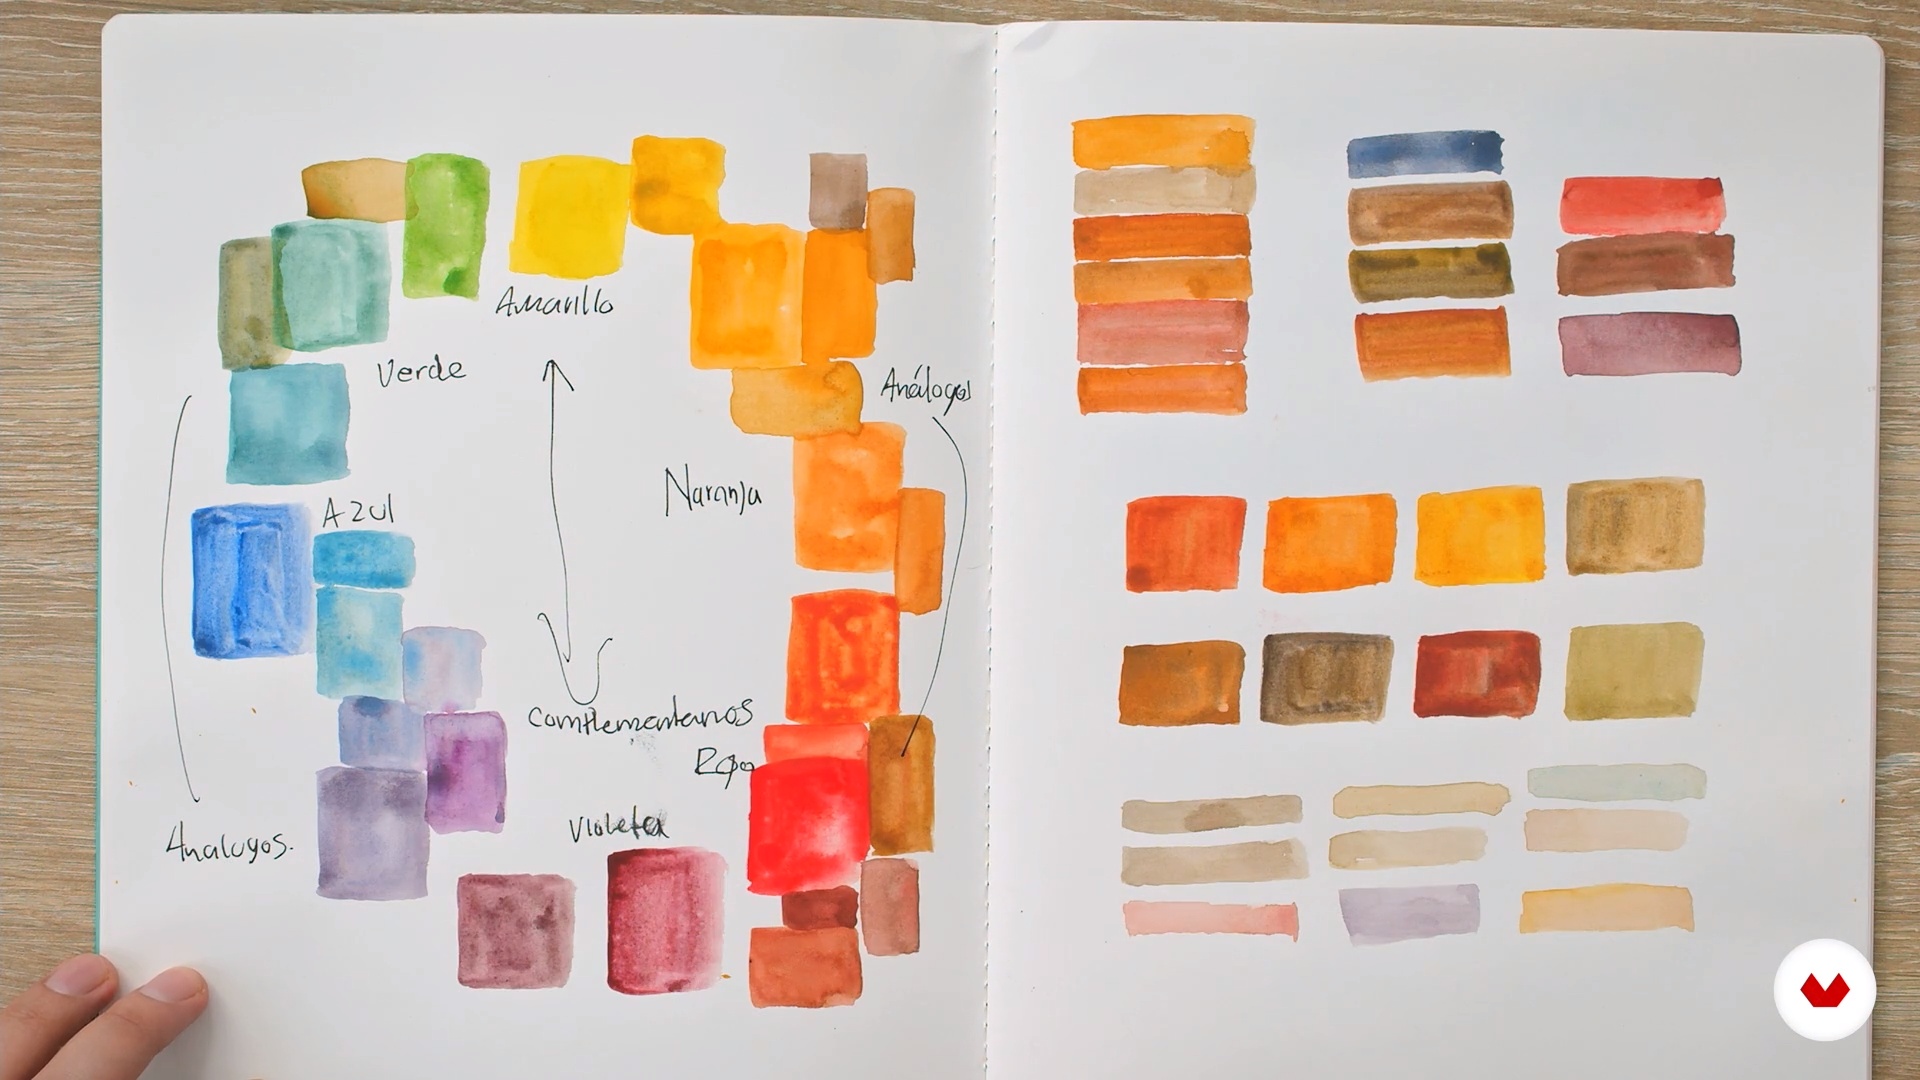 Amarillo
Verde
Análogos
Naranja
Azul
Complementarios
Rojo
Violeta
Analogos.